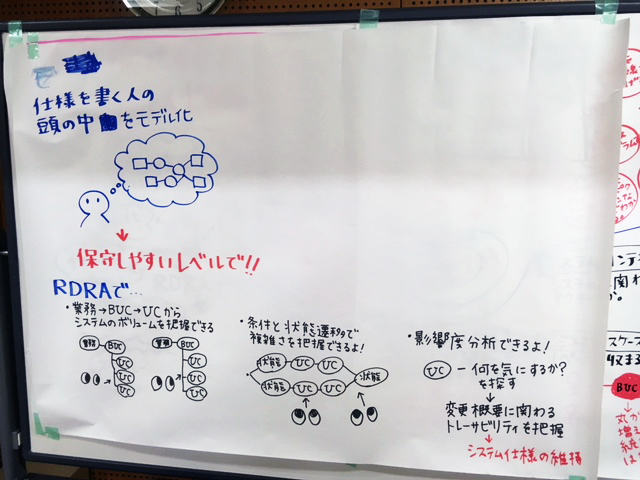 仕様を書く人の
頭の中をモデル化
保守しやすいレベルで!!
RDRAで…
・業務→BUC→UCから
システムのボリュームを把握できる
業務 BUC
UC
UC
UC
業務 BUC
UC
UC
UC
・条件と状態遷移で
複雑さを把握できるよ!
状態 UC UC
状態 UC UC
状態
・影響度分析できるよ!
UC ー何を気にするか?
を探す
変更概要に関わる
トレーサビリティを把握
システム仕様の維持
に関わ
スケープ
収まる
BUC
増え